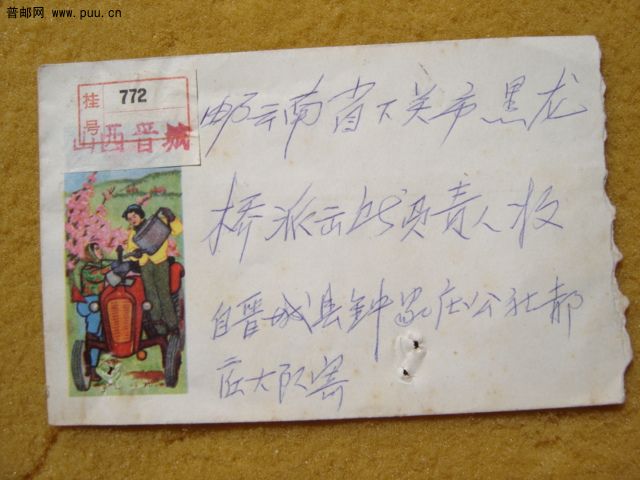 普邮网 www.puu.cn
挂号 772
山西晋城
邮云南省下关市黑龙
桥派出所负责人收
自晋城县钟家庄公社都
庄大队寄